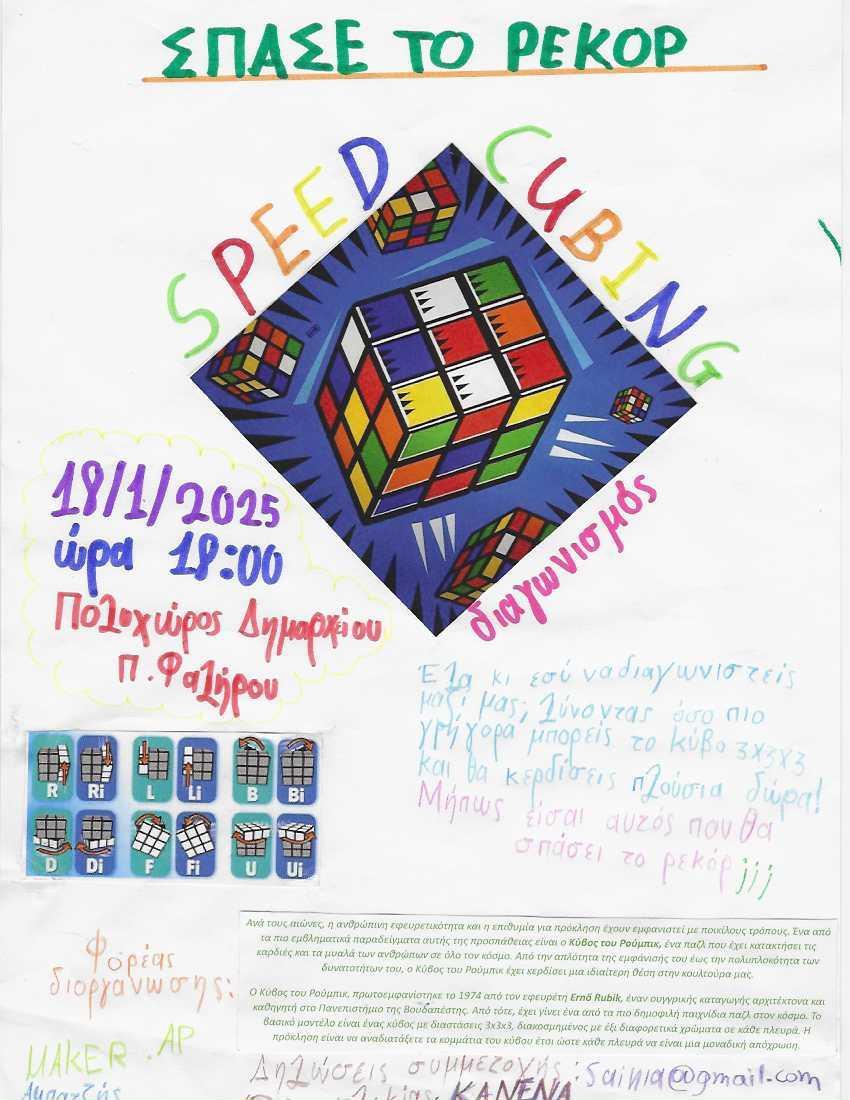 ΣΠΑΣΕ ΤΟ ΡΕΚΟΡ
SPEED CUBING
διαγωνισμός
18/1/2025
ώρα 18:00
Πολυχώρος Δημαρχείου
Π. Φαλήρου
Έλα κι εσύ να διαγωνιστείς
μαζί μας; λύνοντας όσο πιο
γρήγορα μπορείς το κύβο 3x3x3
και θα κερδίσεις πλούσια δώρα!
Μήπως είσαι αυτός που θα
σπάσει το ρεκόρ;;;
R Ri L Li B Bi
D Di F Fi U Ui
Ανά τους αιώνες, η ανθρώπινη εφευρετικότητα και η επιθυμία για πρόκληση έχουν εμφανιστεί με ποικίλους τρόπους. Ένα από
τα πιο εμβληματικά παραδείγματα αυτής της προσπάθειας είναι ο Κύβος του Ρούμπικ, ένα παζλ που έχει κατακτήσει τις
καρδιές και τα μυαλά των ανθρώπων σε όλο τον κόσμο. Από την απλότητα της εμφάνισής του έως την πολυπλοκότητα των
δυνατοτήτων του, ο Κύβος του Ρούμπικ έχει κερδίσει μια ιδιαίτερη θέση στην κουλτούρα μας.
Ο Κύβος του Ρούμπικ, πρωτοεμφανίστηκε το 1974 από τον εφευρέτη Ernő Rubik, έναν ουγγρικής καταγωγής αρχιτέκτονα και
καθηγητή στο Πανεπιστήμιο της Βουδαπέστης. Από τότε, έχει γίνει ένα από τα πιο δημοφιλή παιχνίδια παζλ στον κόσμο. Το
βασικό μοντέλο είναι ένας κύβος με διαστάσεις 3x3x3, διακοσμημένος με έξι διαφορετικά χρώματα σε κάθε πλευρά. Η
πρόκληση είναι να αναδιατάξετε τα κομμάτια του κύβου έτσι ώστε κάθε πλευρά να είναι μια μοναδική απόχρωση.
Φορέας
διοργάνωσης:
MAKER .AP
Δηλώσεις συμμετοχής: sainia@gmail.com
ΚΑΝΕΝΑ